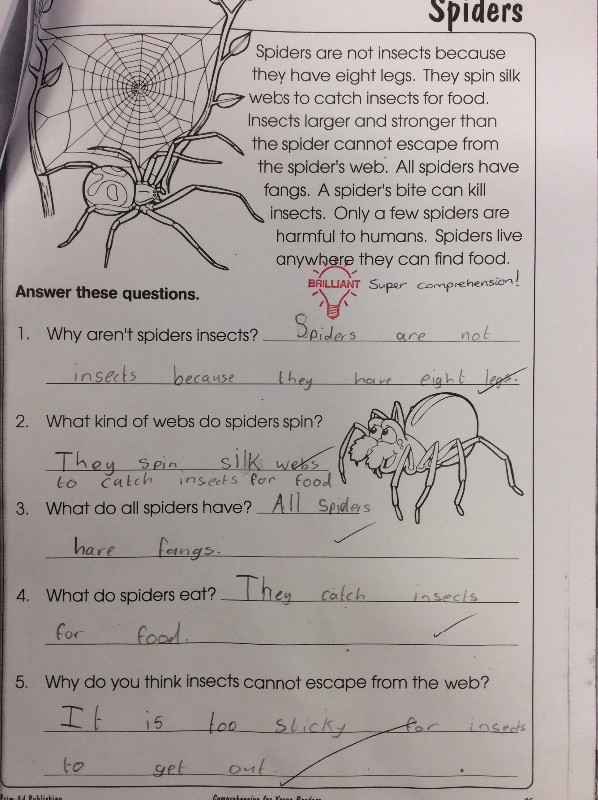 Spiders
Spiders are not insects because
they have eight legs. They spin silk
webs to catch insects for food.
Insects larger and stronger than
the spider cannot escape from
the spider's web. All spiders have
fangs. A spider's bite can kill
insects. Only a few spiders are
harmful to humans. Spiders live
anywhere they can find food.
BRILLIANT Super comprehension!
Answer these questions.
1. Why aren't spiders insects? Spiders are not
insects because they have eight legs.
2. What kind of webs do spiders spin?
They spin silk webs
to catch insects for food
3. What do all spiders have? All Spiders
have fangs.
4. What do spiders eat? They catch insects
for food.
5. Why do you think insects cannot escape from the web?
It is too sticky for insects
to get out.
Prim-Ed Publishing Comprehension for Young Readers